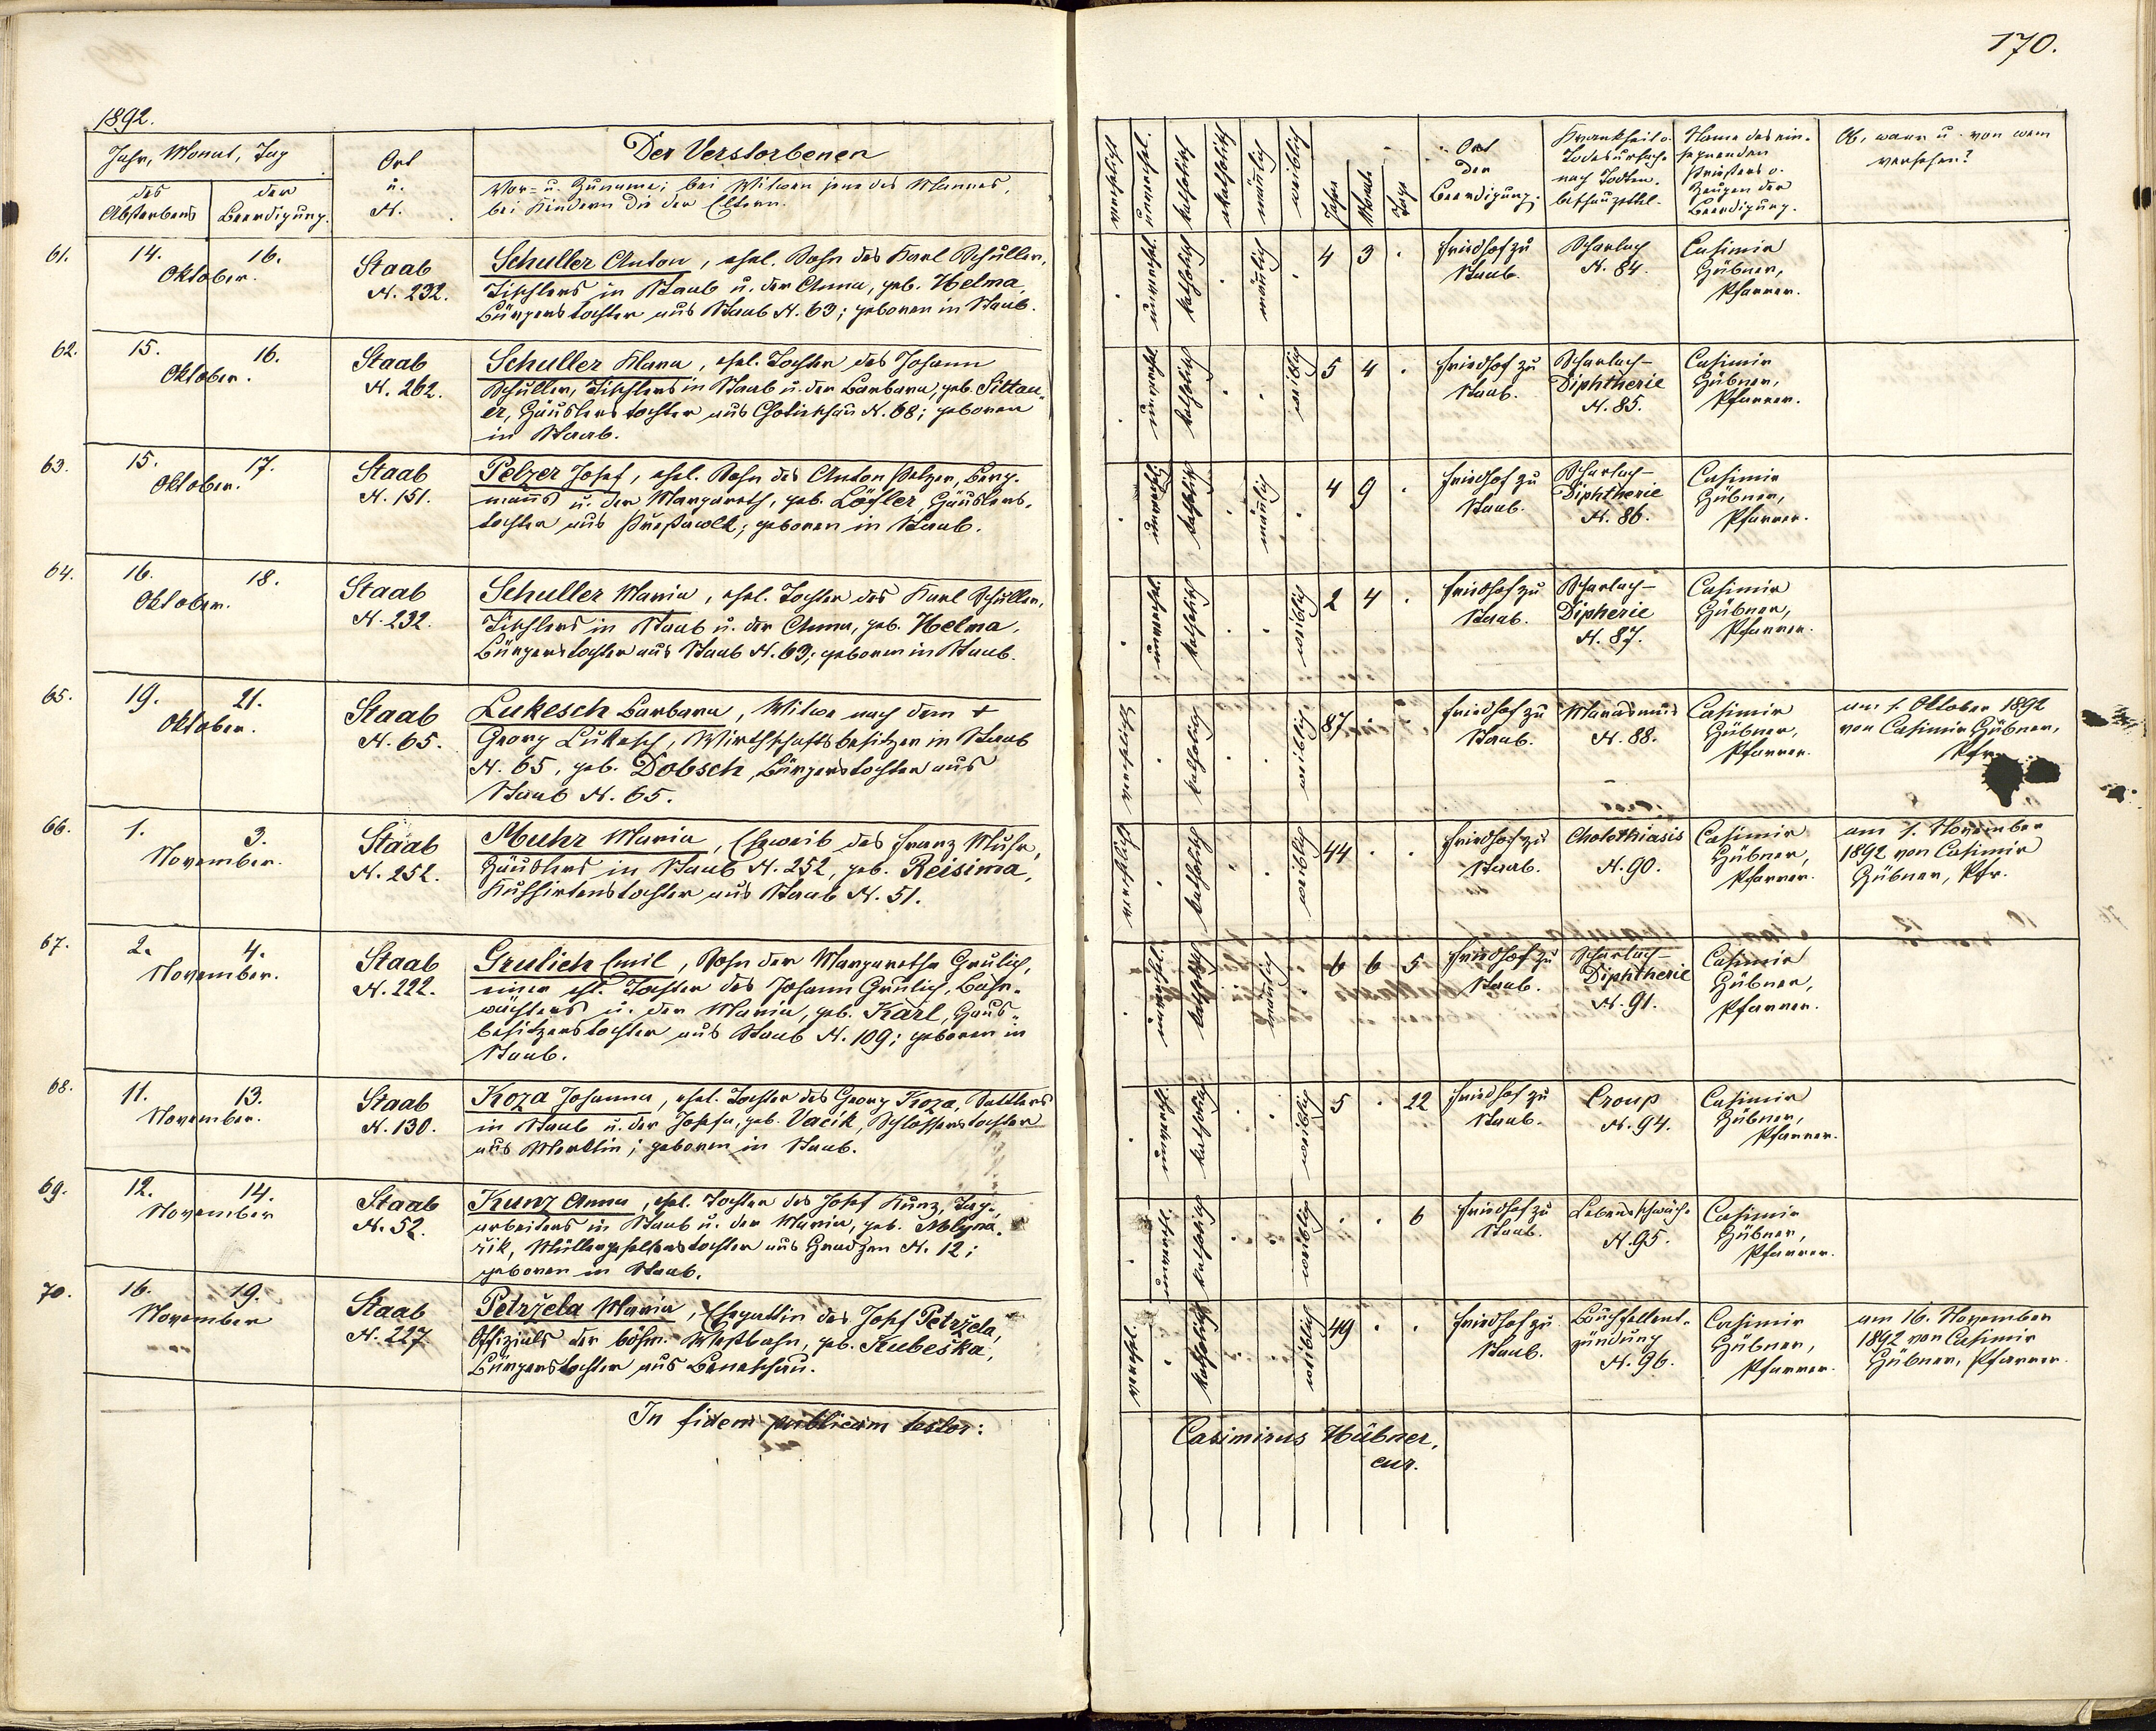 170.
1892.
Jahr, Monat, Tag
des Absterbens
der Beerdigung.
Ort
u.
N.
Der Verstorbenen
Vor- u. Zuname; bei Witwen jene des Mannes,
bei Kindern die der Eltern.
verehelicht
unverehel.
katholisch
akatholisch
männlich
weiblich
Jahre
Monate
Tage
Ort
der
Beerdigung.
Krankheit o.
Todesursache
nach Todten-
beschauzettel.
Name des ein-
segnenden
Priesters o.
Zeugen der
Beerdigung.
Ob, wann u. von wem
versehen?
61.
14. 16.
Oktober.
Staab
N. 232.
Schuller Anton, ehel. Sohn des Karl Schuller,
Tischlers in Staab u. der Anna, geb. Helma,
Bürgerstochter aus Staab N. 63; geboren in Staab.
unverehel.
katholisch
männlich
4 3 .
Friedhof zu
Staab.
Scharlach
N. 84.
Casimir
Hübner,
Pfarrer.
62.
15. 16.
Oktober.
Staab
N. 262.
Schuller Klara, ehel. Tochter des Johann
Schuller, Tischlers in Staab u. der Barbara, geb. Sittau-
er, Häuslerstochter aus Chotieschau N. 68; geboren
in Staab.
unverehel.
katholisch
weiblich
5 4 .
Friedhof zu
Staab.
Scharlach-
Diphtherie
N. 85.
Casimir
Hübner,
Pfarrer.
63.
15. 17.
Oktober.
Staab
N. 151.
Pelzer Josef, ehel. Sohn des Anton Pelzer, Berg-
manns u. der Margareth, geb. Löffler, Häuslers-
tochter aus; geboren in Staab.
unverehel.
katholisch
männlich
4 9 .
Friedhof zu
Staab.
Scharlach-
Diphtherie
N. 86.
Casimir
Hübner,
Pfarrer.
64.
16. 18.
Oktober.
Staab
N. 232.
Schuller Maria, ehel. Tochter des Karl Schuller,
Tischlers in Staab u. der Anna, geb. Helma,
Bürgerstochter aus Staab N. 63; geboren in Staab.
unverehel.
katholisch
weiblich
2 4 .
Friedhof zu
Staab.
Scharlach-
Dipherie
N. 87.
Casimir
Hübner,
Pfarrer.
65.
19. 21.
Oktober.
Staab
N. 65.
Lukesch Barbara, Witwe nach dem +
Georg Lukesch, Wirthschaftsbesitzer in Staab
N. 65, geb. Dobsch, Bürgerstochter aus
Staab N. 65.
verehelicht
katholisch
weiblich
87 . .
Friedhof zu
Staab.
Marasmus
N. 88.
Casimir
Hübner,
Pfarrer.
am 1. Oktober 1892
von Casimir Hübner,
Pfr.
66.
1. 3.
November.
Staab
N. 252.
Muhr Maria, Eheweib des Franz Muhr,
Häuslers in Staab N. 252, geb. Reisima,
Kuhhirtenstochter aus Staab N. 51.
verehelicht
katholisch
weiblich
44 . .
Friedhof zu
Staab.
Cholothiasis
N. 90.
Casimir
Hübner,
Pfarrer.
am 1. November
1892 von Casimir
Hübner, Pfr.
67.
2. 4.
November.
Staab
N. 222.
Grulich Emil, Sohn der Margaretha Grulich,
einer ehl. Tochter des Johann Grulich, Bahn-
wächters u. der Maria, geb. Karl, Haus-
besitzerstochter aus Staab N. 109; geboren in
Staab.
unverehel.
katholisch
männlich
6 6 5
Friedhof zu
Staab.
Scharlach-
Diphtherie
N. 91.
Casimir
Hübner,
Pfarrer.
68.
11. 13.
November.
Staab
N. 130.
Koza Johanna, ehel. Tochter des Georg Koza, Sattlers
in Staab u. der Josefa, geb. Vacík, Schlosserstochter
aus Merklin; geboren in Staab.
unverehel.
katholisch
weiblich
5 . 22
Friedhof zu
Staab.
Croup
N. 94.
Casimir
Hübner,
Pfarrer.
69.
12. 14.
November
Staab
N. 52.
Kunz Anna, ehel. Tochter des Josef Kunz, Tag-
arbeiters in Staab u. der Maria, geb. Mlyna-
řik, Müllergesellenstochter aus Hradzen N. 12;
geboren in Staab.
unverehl.
katholisch
weiblich
. . 6
Friedhof zu
Staab.
Lebensschwäche
N. 95.
Casimir
Hübner,
Pfarrer.
70.
16. 19.
November
Staab
N. 227
Petržela Maria, Ehegattin des Josef Petržela,
Offizials der böhm. Westbahn, geb. Kubeška,
Bürgerstochter aus Beneschau.
verehel.
katholisch
weiblich
49 . .
Friedhof zu
Staab.
Bauchfellent-
zündung
N. 96.
Casimir
Hübner,
Pfarrer.
am 16. November
1892 von Casimir
Hübner, Pfarrer.
In fidem publicam testor:
Casimirus Hübner,
cur.